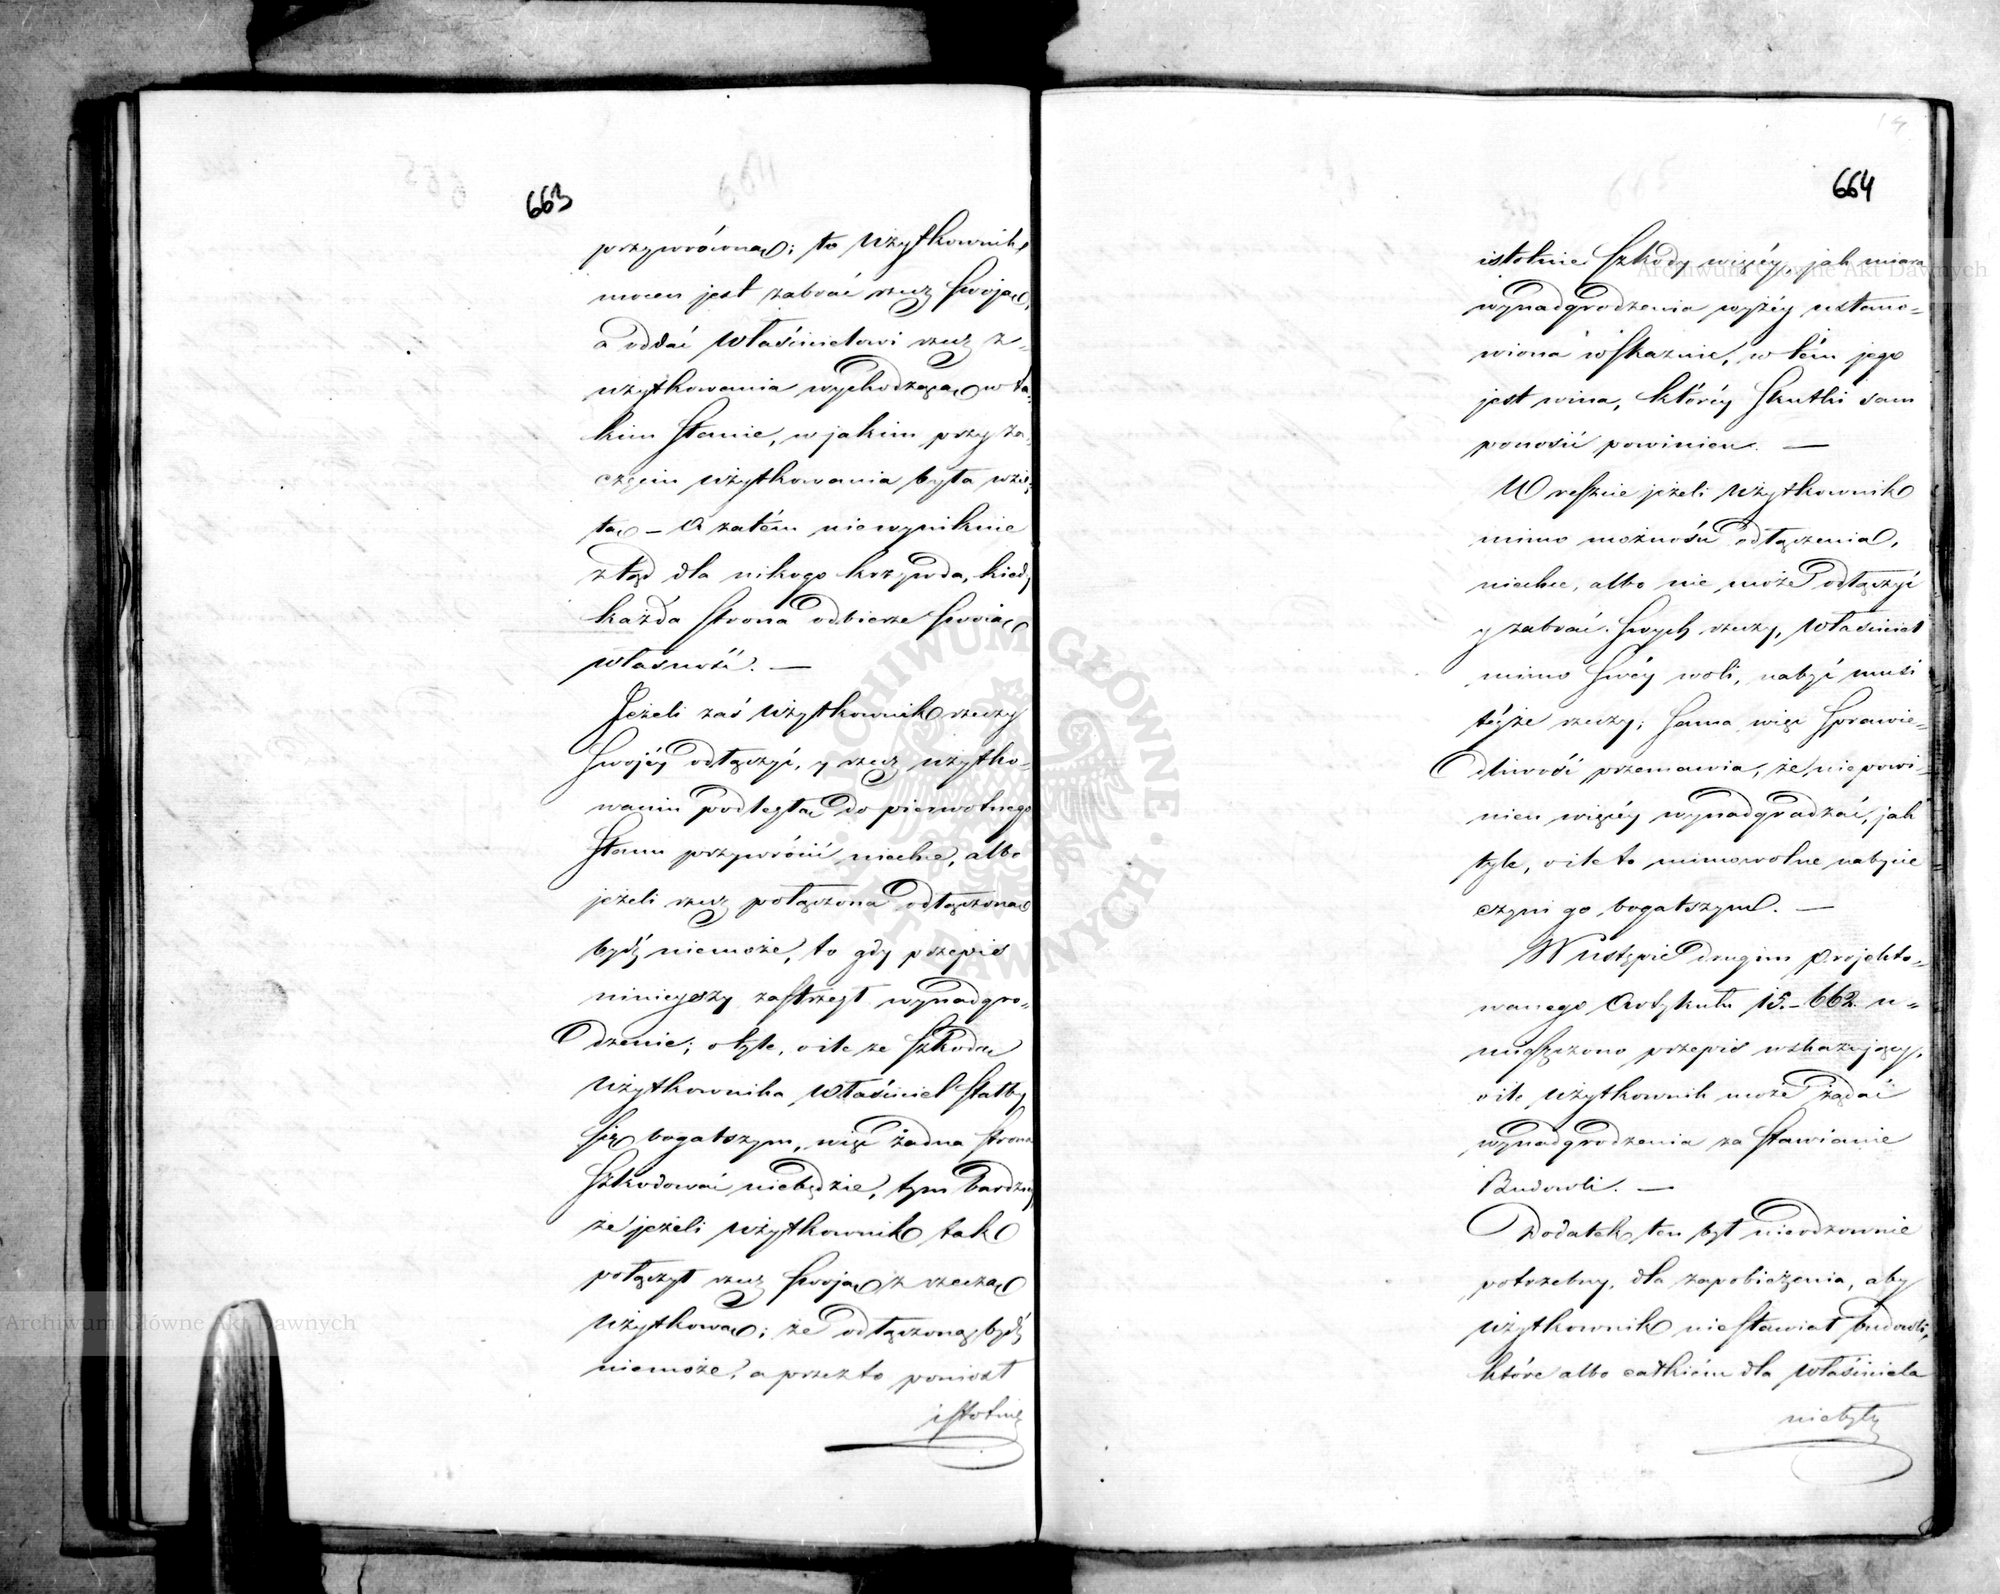 663
przywróconą; to Użytkownik
mocen jest zabrać rzecz swoją,
a oddać Właścicielowi rzecz z-
użytkowania wychodzącą w ta-
kim stanie, w jakim przy za-
częciu użytkowania była wzię-
ta – A zatém niewyniknie
ztąd dla nikogo krzywda, kiedy
każda strona odbierze swoią
własność. —
Jeżeli zaś Użytkownik rzeczy
swojéy odłączyć, y rzecz użytko-
waniu podległa do pierwotnego
stanu przywrócić niechce, albo
jeżeli rzecz połączona odłączona
bydź niemoże, to gdy przepis
ninieyszy zastrzegł wynadgro-
dzenie; o tyle, o ile ze szkoda
Użytkownika Właściciel stałby
się bogatszym, więc żadna strona
szkodować niebędzie, tym bardziey
że jeżeli Użytkownik tak
połączył rzecz swoją z rzeczą
Użytkową; że odłączoną bydź
niemoże, a przez to poniosł
istotnie
664
istotnie szkody więcéy, jak miara
wynadgrodzenia wyżéy ustano-
wiona wskaznie, w tém jego
jest wina, któréy skutki sam
ponosić powinien. —
W reszcie jeżeli Użytkownik
mimo możności odłączenia,
niechce, albo nie może odłączyć
y zabrać swych rzeczy, Właściciel
mimo swéy woli, nabyć musi
téyże rzeczy; sama więc sprawie-
dliwość przemawia, że niepowi-
nien więcéy wynadgradzać, jak
tyle, o ile to mimowolne nabycie
czyni go bogatszym. —
W ustępie drugim projekto-
wanego Artykułu 15.– 662. u-
mieszczono przepis wskazujący,
o ile Użytkownik może żądać
wynadgrodzenia za stawianie
Budowli. —
Dodatek ten był nieodzownie
potrzebny, dla zapobieżenia, aby
Użytkownik niestawiał budowli,
które albo całkiém dla Właściciela
niebyły
Archiwum Główne Akt Dawnych